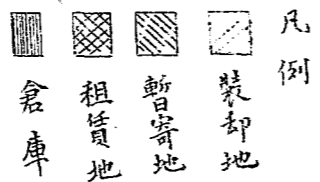 凡例
裝卸地
暫寄地
租賃地
倉庫